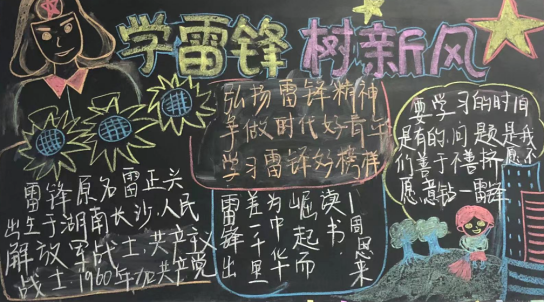 学雷锋 树新风
弘扬雷锋精神
争做时代好青年
学习雷锋好榜样
要学习的时间
是有的,问题是我
们善于不善挤,愿不
愿意钻一雷锋
雷锋原名雷正兴
出生于湖南长沙,人民
解放军战士,共产主义
战士,1960年加共产党
为中华
崛起而
读书
—周恩来